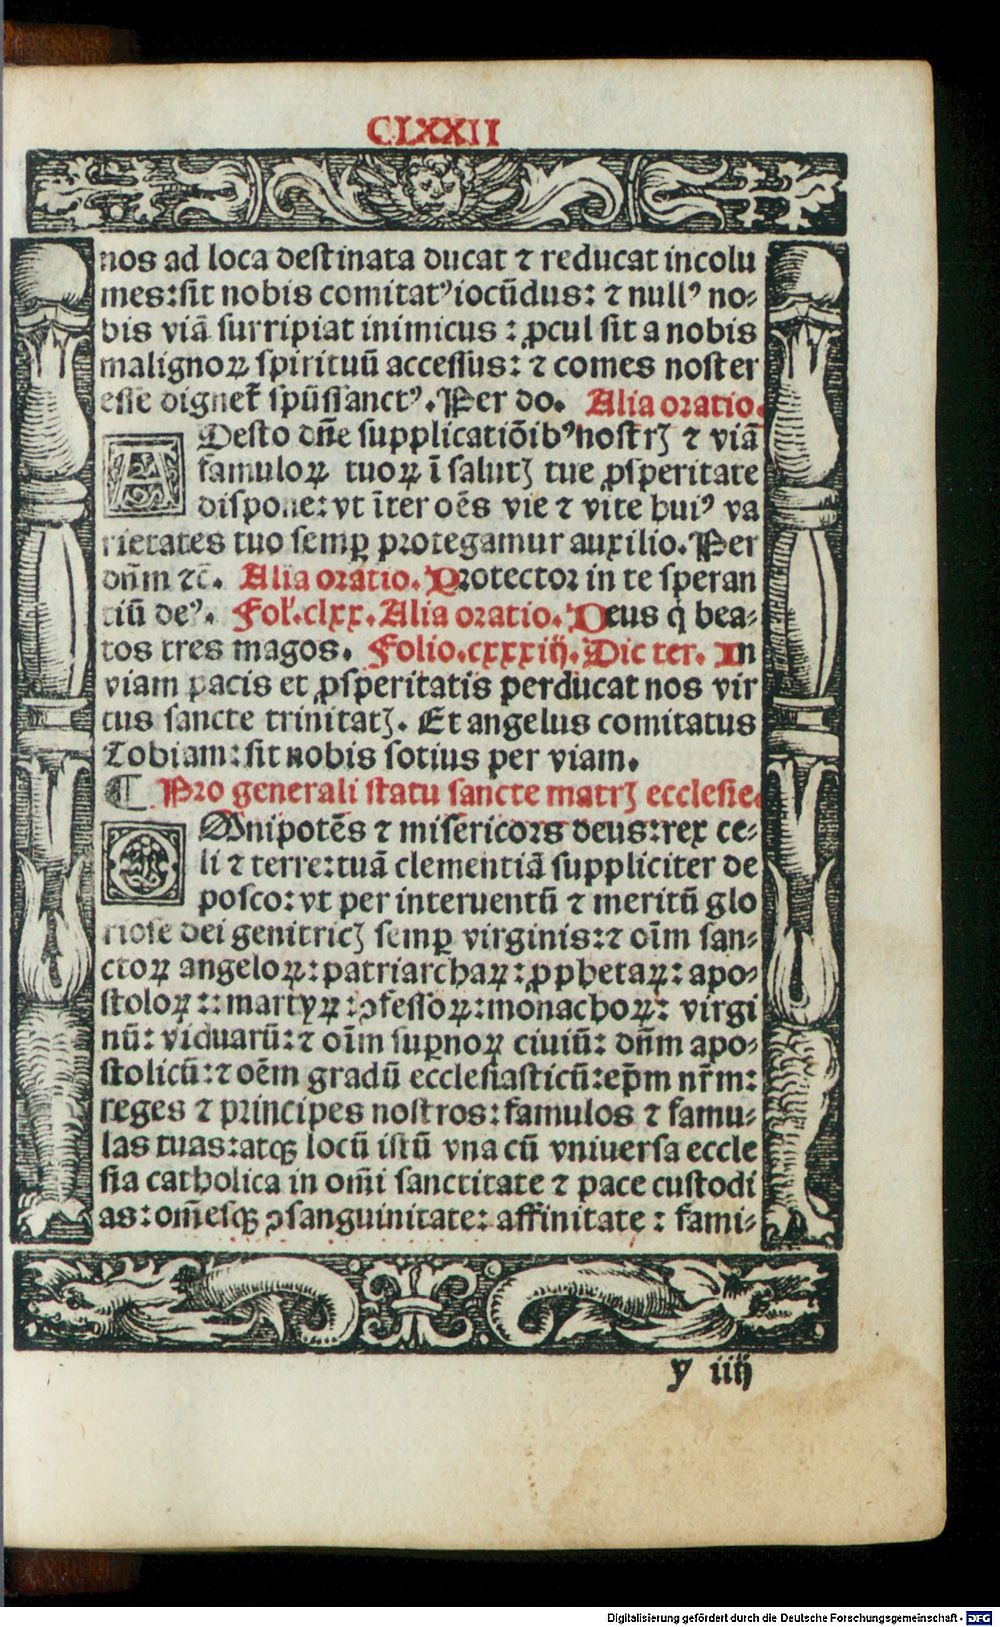 CLXXII
nos ad loca destinata ducat ⁊ reducat incolu
mes: sit nobis comitatꝰ iocũdus: ⁊ nullꝰ no-
bis viã surripiat inimicus: ꝓcul sit a nobis
malignoꝝ spirituũ accessus: ⁊ comes noster
esse dignet̃ spũssanctꝰ. Per do. Alia oratio.
ADesto dñe supplicatiõibꝰ nostrꝭ ⁊ viã
famuloꝝ tuoꝝ ĩ salutꝭ tue ꝓsperitate
dispone: vt ĩter oẽs vie ⁊ vite huiꝰ va
rietates tuo semꝑ protegamur auxilio. Per
dñm ⁊c̃. Alia oratio. Protector in te speran
tiũ deꝰ. Fol'. clxx. Alia oratio. Deus q̇ bea-
tos tres magos. Folio. cxxxiiij. Dic ter. In
viam pacis et ꝓsperitatis perducat nos vir
tus sancte trinitatꝭ. Et angelus comitatus
Tobiam: sit nobis sotius per viam.
¶ Pro generali statu sancte matrꝭ ecclesie.
OMnipotẽs ⁊ misericors deus: rex ce-
li ⁊ terre: tuã clementiã suppliciter de
posco: vt per interuentũ ⁊ meritũ glo
riose dei genitricꝭ semꝑ virginis: ⁊ oĩm san-
ctoꝝ angeloꝝ: patriarchaꝝ: ꝓphetaꝝ: apo-
stoloꝝ:: martyꝝ: ꝯfessoꝝ: monachoꝝ: virgi
nũ: viduarũ: ⁊ oĩm suꝑnoꝝ ciuiũ: dñm apo-
stolicũ: ⁊ oẽm gradũ ecclesiasticũ: ep̃m nr̃m:
reges ⁊ principes nostros: famulos ⁊ famu-
las tuas: atqꝫ locũ istũ vna cũ vniuersa eccle
sia catholica in om̃i sanctitate ⁊ pace custodi
as: om̃esqꝫ ꝯsanguinitate: affinitate: fami-
y iiij
Digitalisierung gefördert durch die Deutsche Forschungsgemeinschaft - DFG